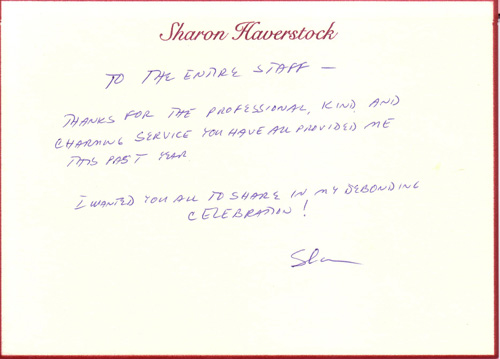 Sharon Haverstock
TO THE ENTIRE STAFF —
THANKS FOR THE PROFESSIONAL, KIND AND
CHARMING SERVICE YOU HAVE ALL PROVIDED ME
THIS PAST YEAR
I WANTED YOU ALL TO SHARE IN MY DEBONDING
CELEBRATION!